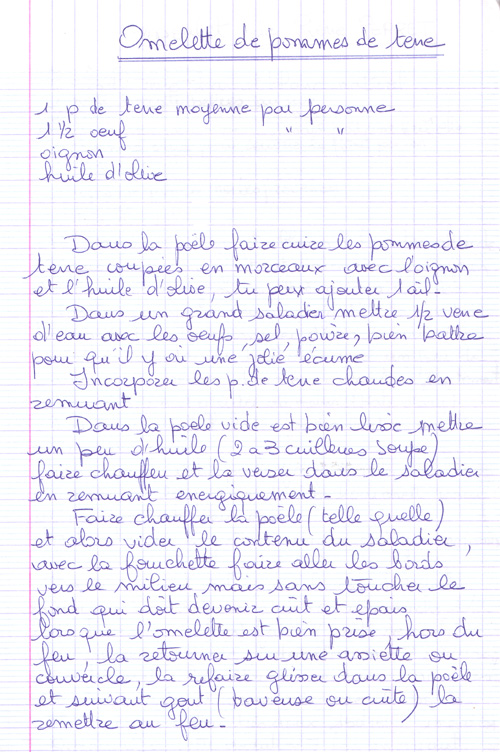 Omelette de pommes de terre
1 p de terre moyenne par personne
1 1/2 oeuf " "
oignon
huile d'olive
Dans la poêle faire cuire les pommes de
terre coupées en morceaux avec l'oignon
et l'huile d'olive, tu peux ajouter l'ail.
Dans un grand saladier mettre 1/2 verre
d'eau avec les oeufs, sel, poivre, bien battre
pour qu'il y ai une jolie écume
Incorporer les p. de terre chaudes en
remuant
Dans la poele vide et bien lisse mettre
un peu d'huile (2 a 3 cuilleres soupe)
faire chauffer et la verser dans le saladier
en remuant energiquement.
Faire chauffer la poèle (telle quelle)
et alors vider le contenu du saladier,
avec la fourchette faire aller les bords
vers le milieu mais sans toucher le
fond qui doit devenir cuit et epais
lorsque l'omelette est bien prise, hors du
feu, la retourner sur une assiette ou
couvercle, la refaire glisser dans la poèle
et suivant gout (baveuse ou cuite) la
remettre au feu.